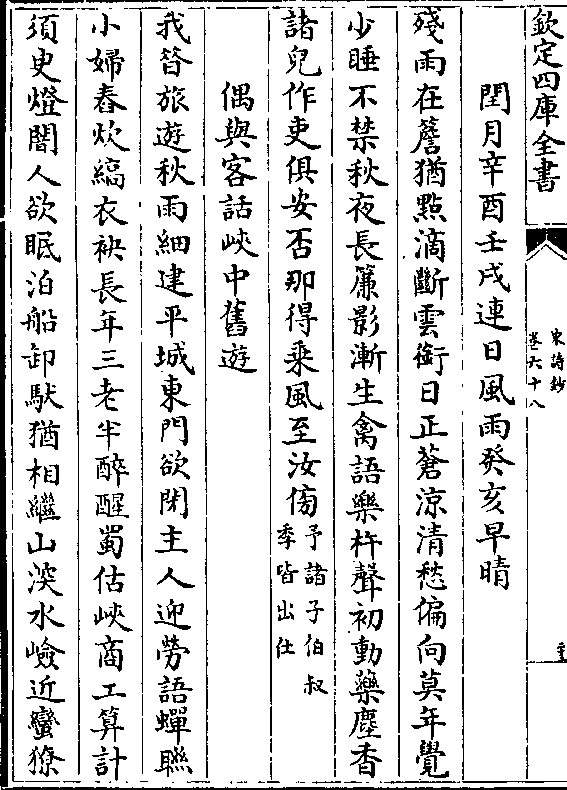 欽定四庫全書
宋詩鈔
卷六十八
閏月辛酉壬戌連日風雨癸亥早晴
殘雨在簷猶㸃滴斷雲銜日正蒼涼清愁偏向莫年覺
少睡不禁秋夜長簾影漸生禽語樂杵聲初動藥塵香
諸兒作吏俱安否那得乗風至汝傍予諸子伯叔
季皆出仕
偶與客話峽中舊遊
我昔旅遊秋雨細建平城東門欲閉主人迎勞語蟬聯
小婦舂炊縞衣袂長年三老半醉醒蜀估峽商工算計
須史燈闇人欲眠泊船卸馱猶相繼山深水嶮近蠻獠